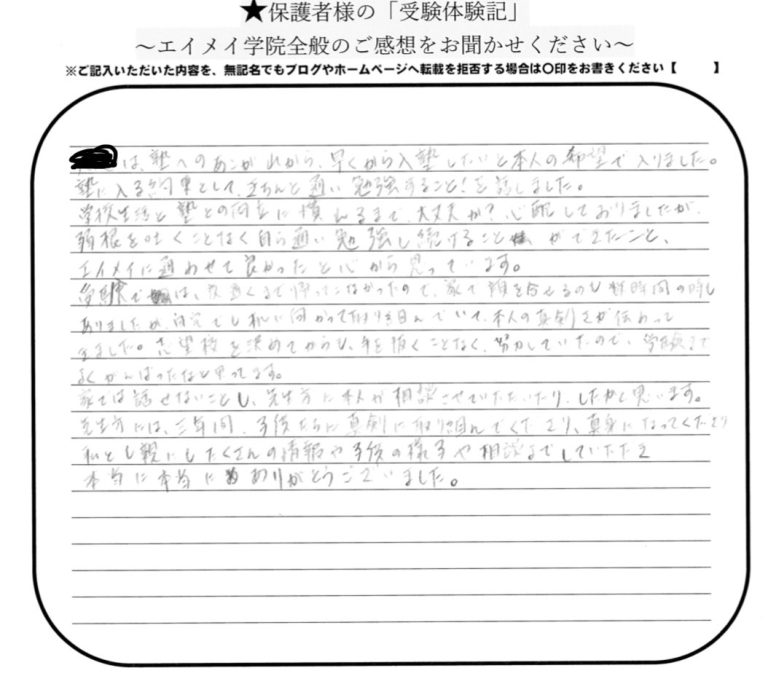 ★保護者様の「受験体験記」
～エイメイ学院全般のご感想をお聞かせください～
※ご記入いただいた内容を、無記名でもブログやホームページへ転載を拒否する場合は〇印をお書きください【　　　】
は、塾へのあこがれから、早くから入塾したいと本人の希望で入りました。
塾に入る約束として、きちんと通い勉強すること！を話しました。
学校生活と塾との両立に慣れるまで、大丈夫か？心配しておりましたが、
弱根を吐くことなく自ら通い勉強し続けること ができたこと、
エイメイに通わせて良かったと心から思っています。
受験で は、夜遅くまで帰ってこなかったので、家で顔を合せるのも短時間の時も
ありましたが、自宅でも机に向かって取り組んでいて、本人の真剣さが伝わって
きました。志望校を決めてからも、手を抜くことなく、努力していたので、
よくがんばったなと思ってます。
家では話せないことも、先生方に本人が相談させていただいたり、したかと思います。
先生方には、三年間、子供たちに真剣に取り組んでくださり、真身になってくださり
私とも親にもたくさんの情報や子供の様子や相談までしていただき
本当に本当に ありがとうございました。